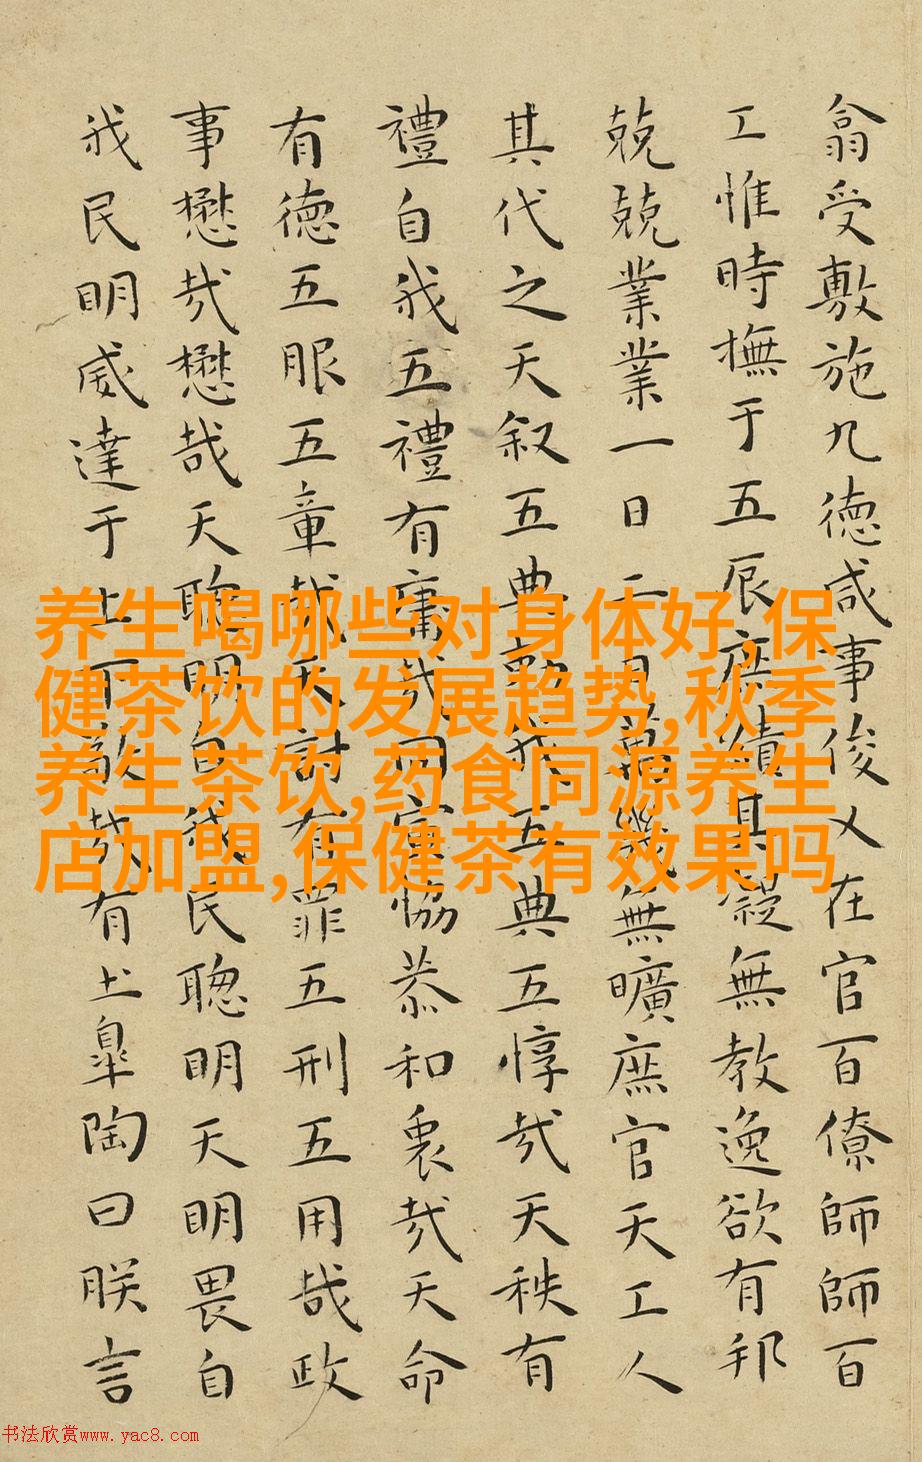 翕受敷施九德咸事俊乂在官百僚師師百
工惟時撫于五辰庶績其凝無教逸欲有邦
兢兢業業一日二日萬幾無曠庶官天工人
其代之天叙五典勑我五典五惇哉天秩有
禮自我五禮有庸哉同寅恊恭和衷哉天命
有德五服五章哉天討有罪五刑五用哉政
事懋哉懋哉天聦明自我民聦明天明畏自
我民明威達于上下敬哉有土皐陶曰朕言
养生喝哪些对身体好,保
健茶饮的发展趋势,秋季
养生茶饮,药食同源养生
店加盟,保健茶有效果吗
书法欣赏www.yac8.com